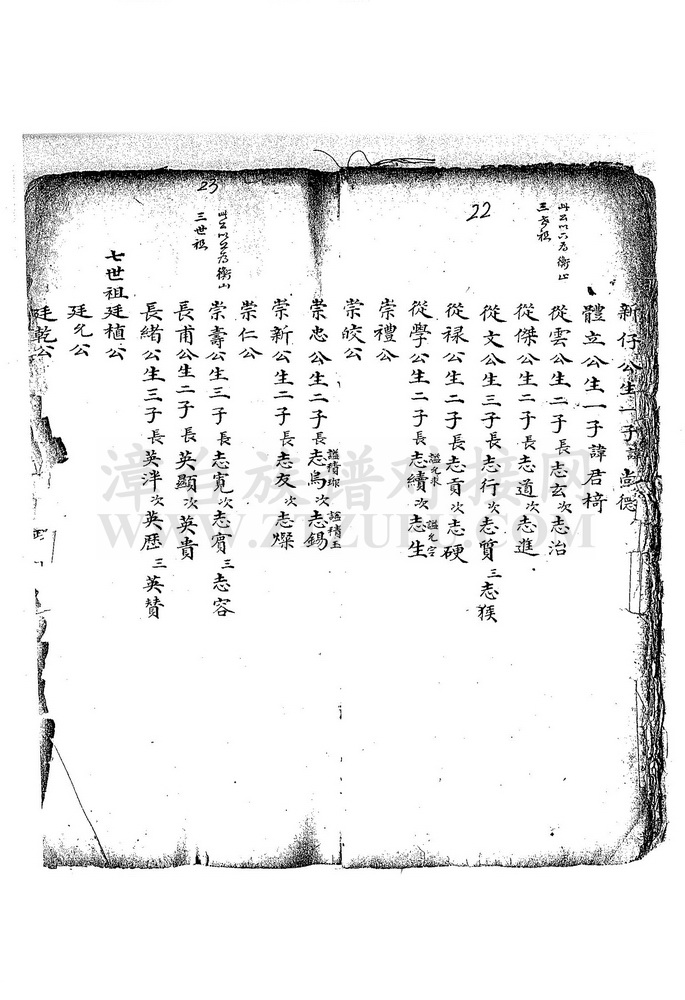 22
新仔公生一子諱尚德
體立公生一子諱君椅
從雲公生二子長志玄次志治
從傑公生二子長志道次志進
從文公生三子長志行次志質三志猴
從祿公生二子長志貢次志硬
從學公生二子長志績次志生
崇禮公
崇皎公
23
崇忠公生二子長志烏次志錫
崇新公生二子長志友次志燦
崇仁公
崇壽公生三子長志寬次志賓三志容
長甫公生二子長英顯次英貴
長緒公生三子長英泮次英歷三英贊
三世祖
七世祖廷植公
廷允公
廷乾公
漳台族谱对接网
WWW.ZTZUPU.COM